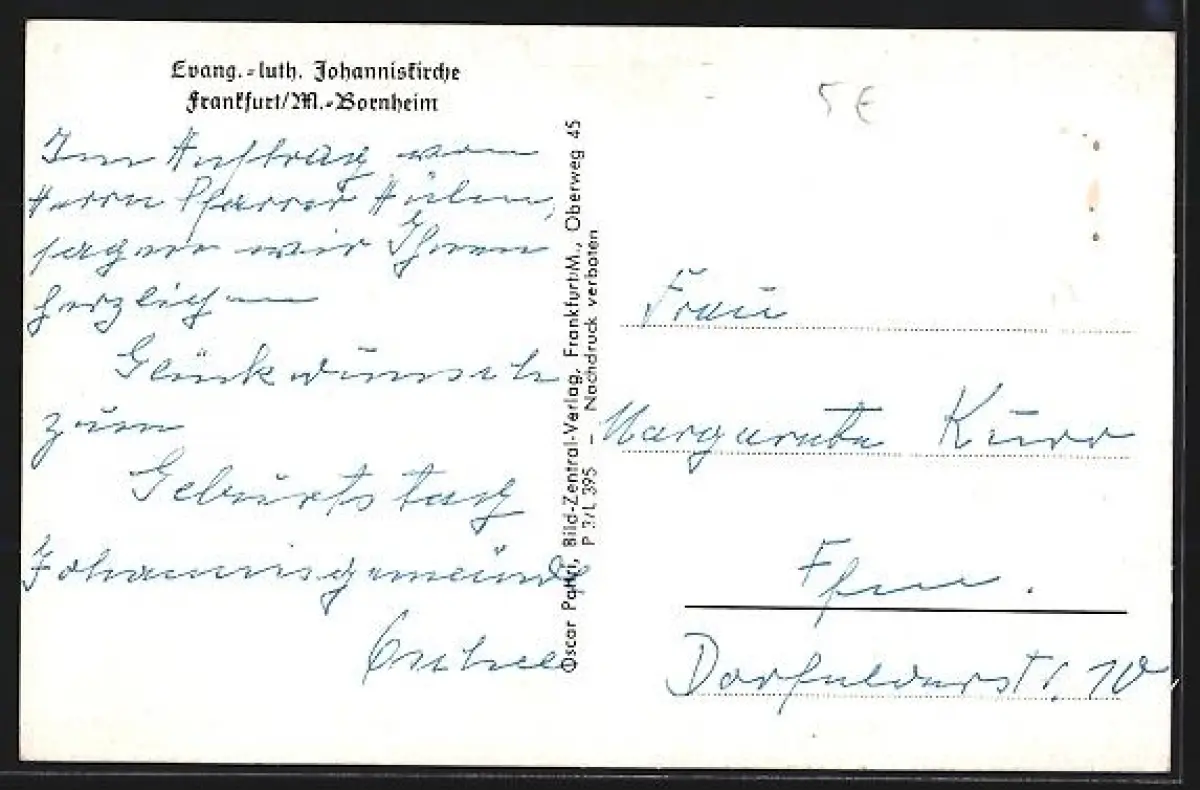 Evang.-luth. Johanniskirche
Frankfurt/M.-Bornheim
Im Auftrag von
Herrn Pfarrer
sagen wir Ihnen
herzlichen
Glückwünsch
zum
Geburtstag
Johannisgemeinde
Oscar Pattri, Bild-Zentral-Verlag, Frankfurt/M., Oberweg 45
P 3/L 395 – Nachdruck verboten
5 €
Frau
Margarete Kurr
Ffm.
Dorfelderstr. 10